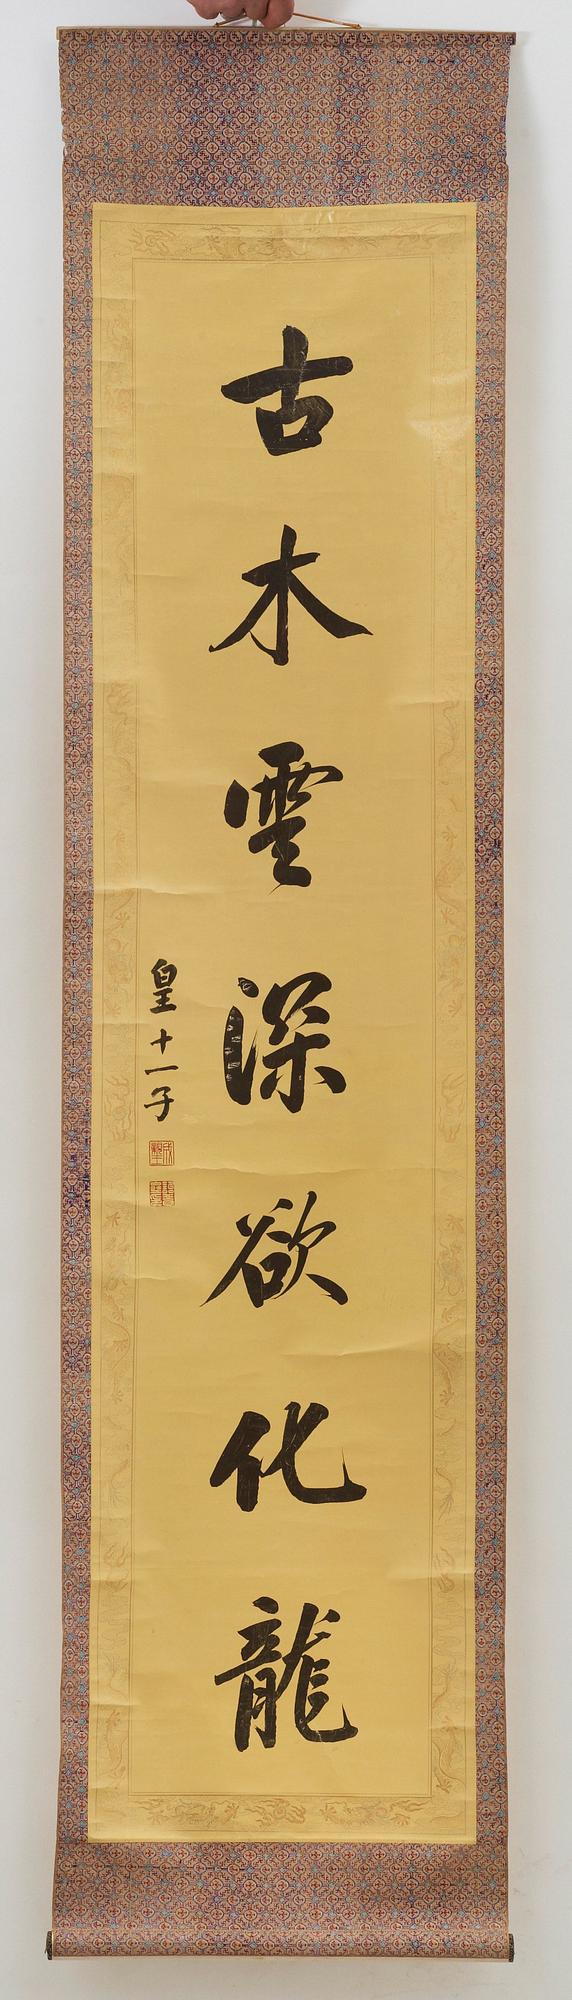 古木雲深欲化龍
皇十一子